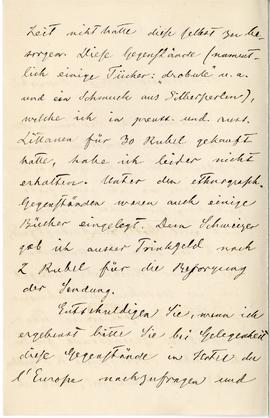 Zeit nicht hatte diese selbst zu be-
sorgen. Diese Gegenstände (nament-
lich einige Tücher: "drobule u. a.
und ein Schmuck aus Silberperlen),
welche ich in preuss. und russ.
Littauen für 30 Rubel gekauft
hatte, habe ich leider nicht
erhalten. Unter den ethnograph.
Gegenständen waren auch einige
Bücher eingelegt. Dem Schweizer
gab ich ausser Trinkgeld noch
2 Rubel für die Besorgung
der Sendung.
Entschuldigen Sie, wenn ich
ergebenst bitte Sie bei Gelegenheit
diese Gegenstände in Hotel de
l'Europe nachzufragen und